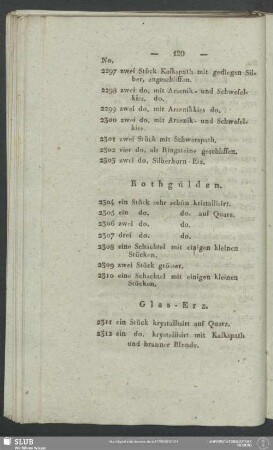 — 120 —
No.
2297 zwei Stück Kalkspath mit gediegen Silber, angeschliffen.
2298 zwei do. mit Arsenik- und Schwefelkies. do.
2299 zwei do. mit Arsenikkies do.
2300 zwei do. mit Arsenik- und Schwefelkies.
2301 zwei Stück mit Schwerspath.
2302 vier do. als Ringsteine geschliffen.
2303 zwei do. Silberhorn-Erz.
Rothgülden.
2304 ein Stück sehr schön kristallisirt.
2305 ein do. do. auf Quarz.
2306 zwei do. do.
2307 drei do. do.
2308 eine Schachtel mit einigen kleinen
Stücken.
2309 zwei Stück grösser.
2310 eine Schachtel mit einigen kleinen
Stücken.
Glas-Erz.
2311 ein Stück krystallisirt auf Quarz.
2312 ein do. krystallisirt mit Kalkspath
und brauner Blende.
SLUB
Wir führen Wissen.